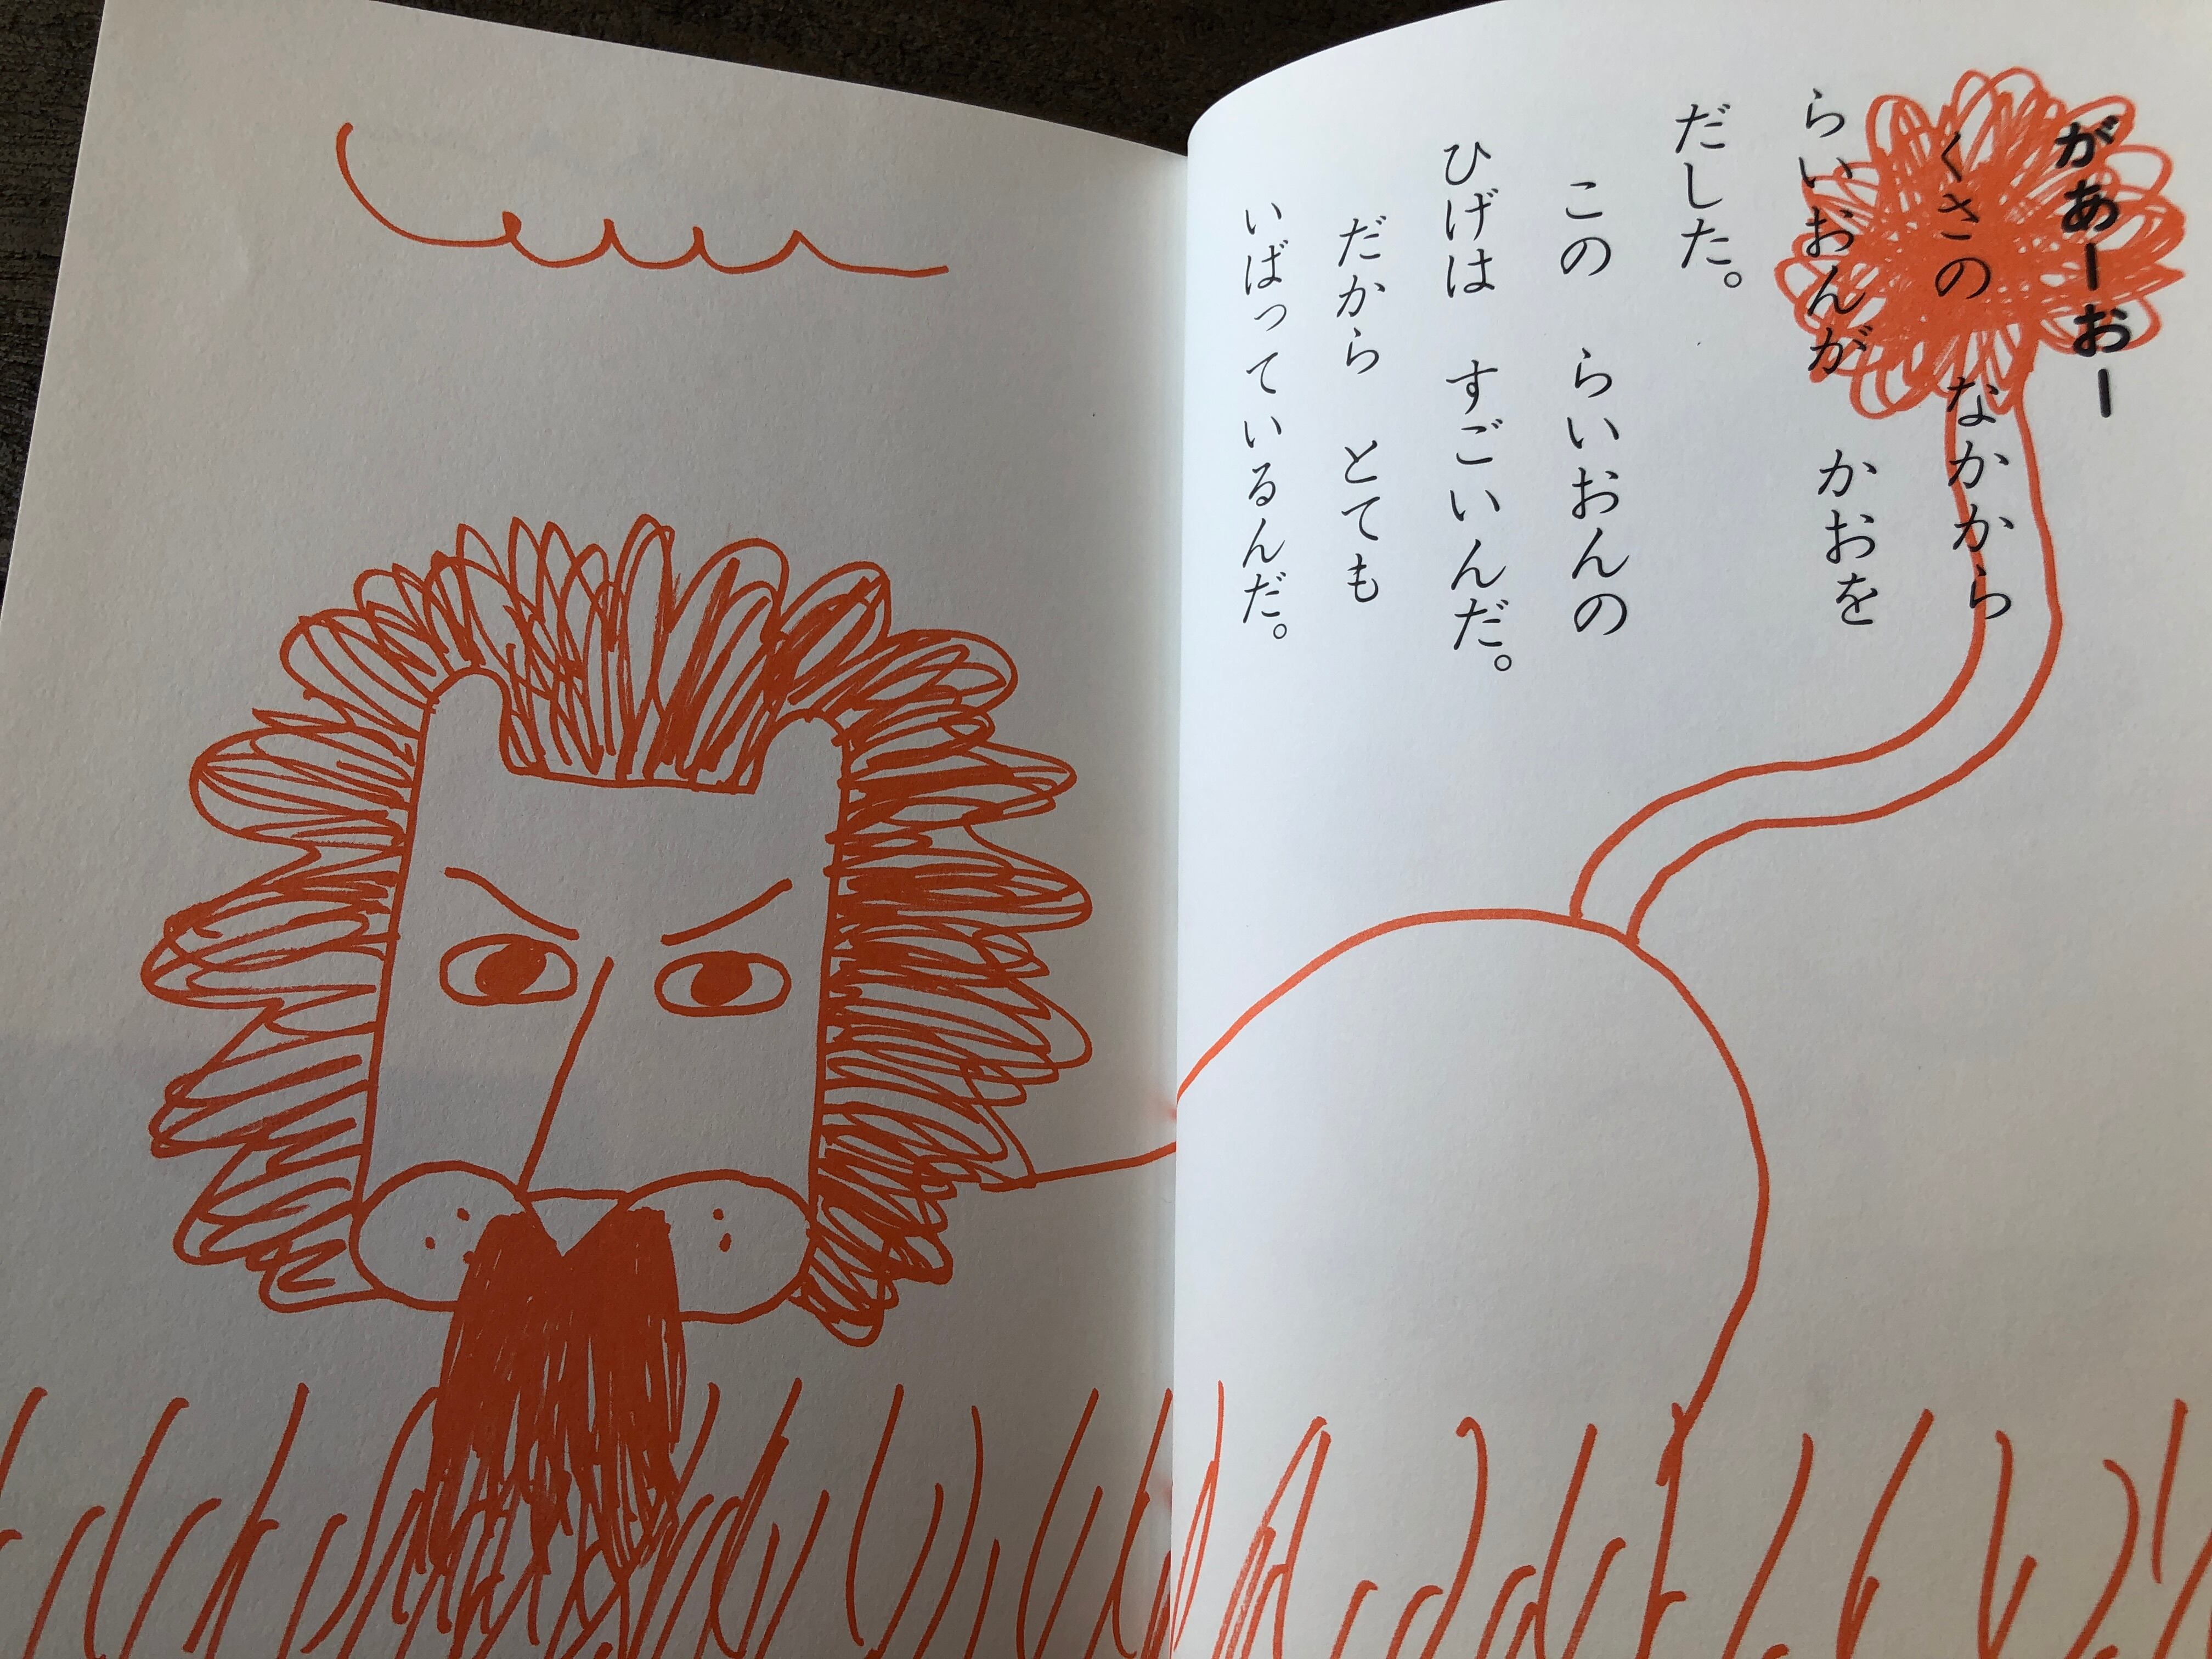 があーおー
くさの　なかから
らいおんが　かおを
だした。
この　らいおんの
ひげは　すごいんだ。
だから　とても
いばっているんだ。